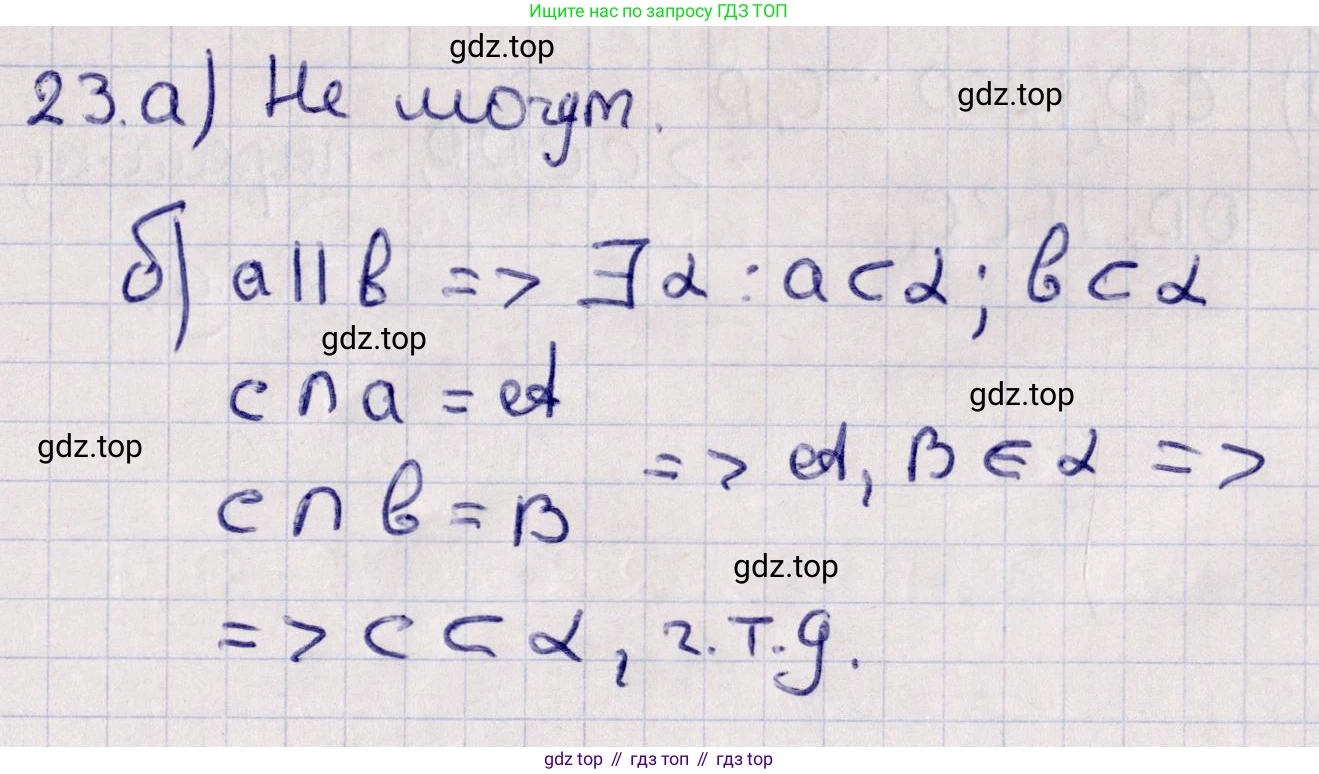 Ищите нас по запросу ГДЗ ТОП
gdz.top
23. а) Не могут.
gdz.top
б) a || b => ∃ α : a ⊂ α ; b ⊂ α
gdz.top
c ∩ a = A
gdz.top
gdz.top
=> A, B ∈ α =>
c ∩ b = B
gdz.top
=> c ⊂ α, ч.т.д.
gdz top // гдз топ // gdz top